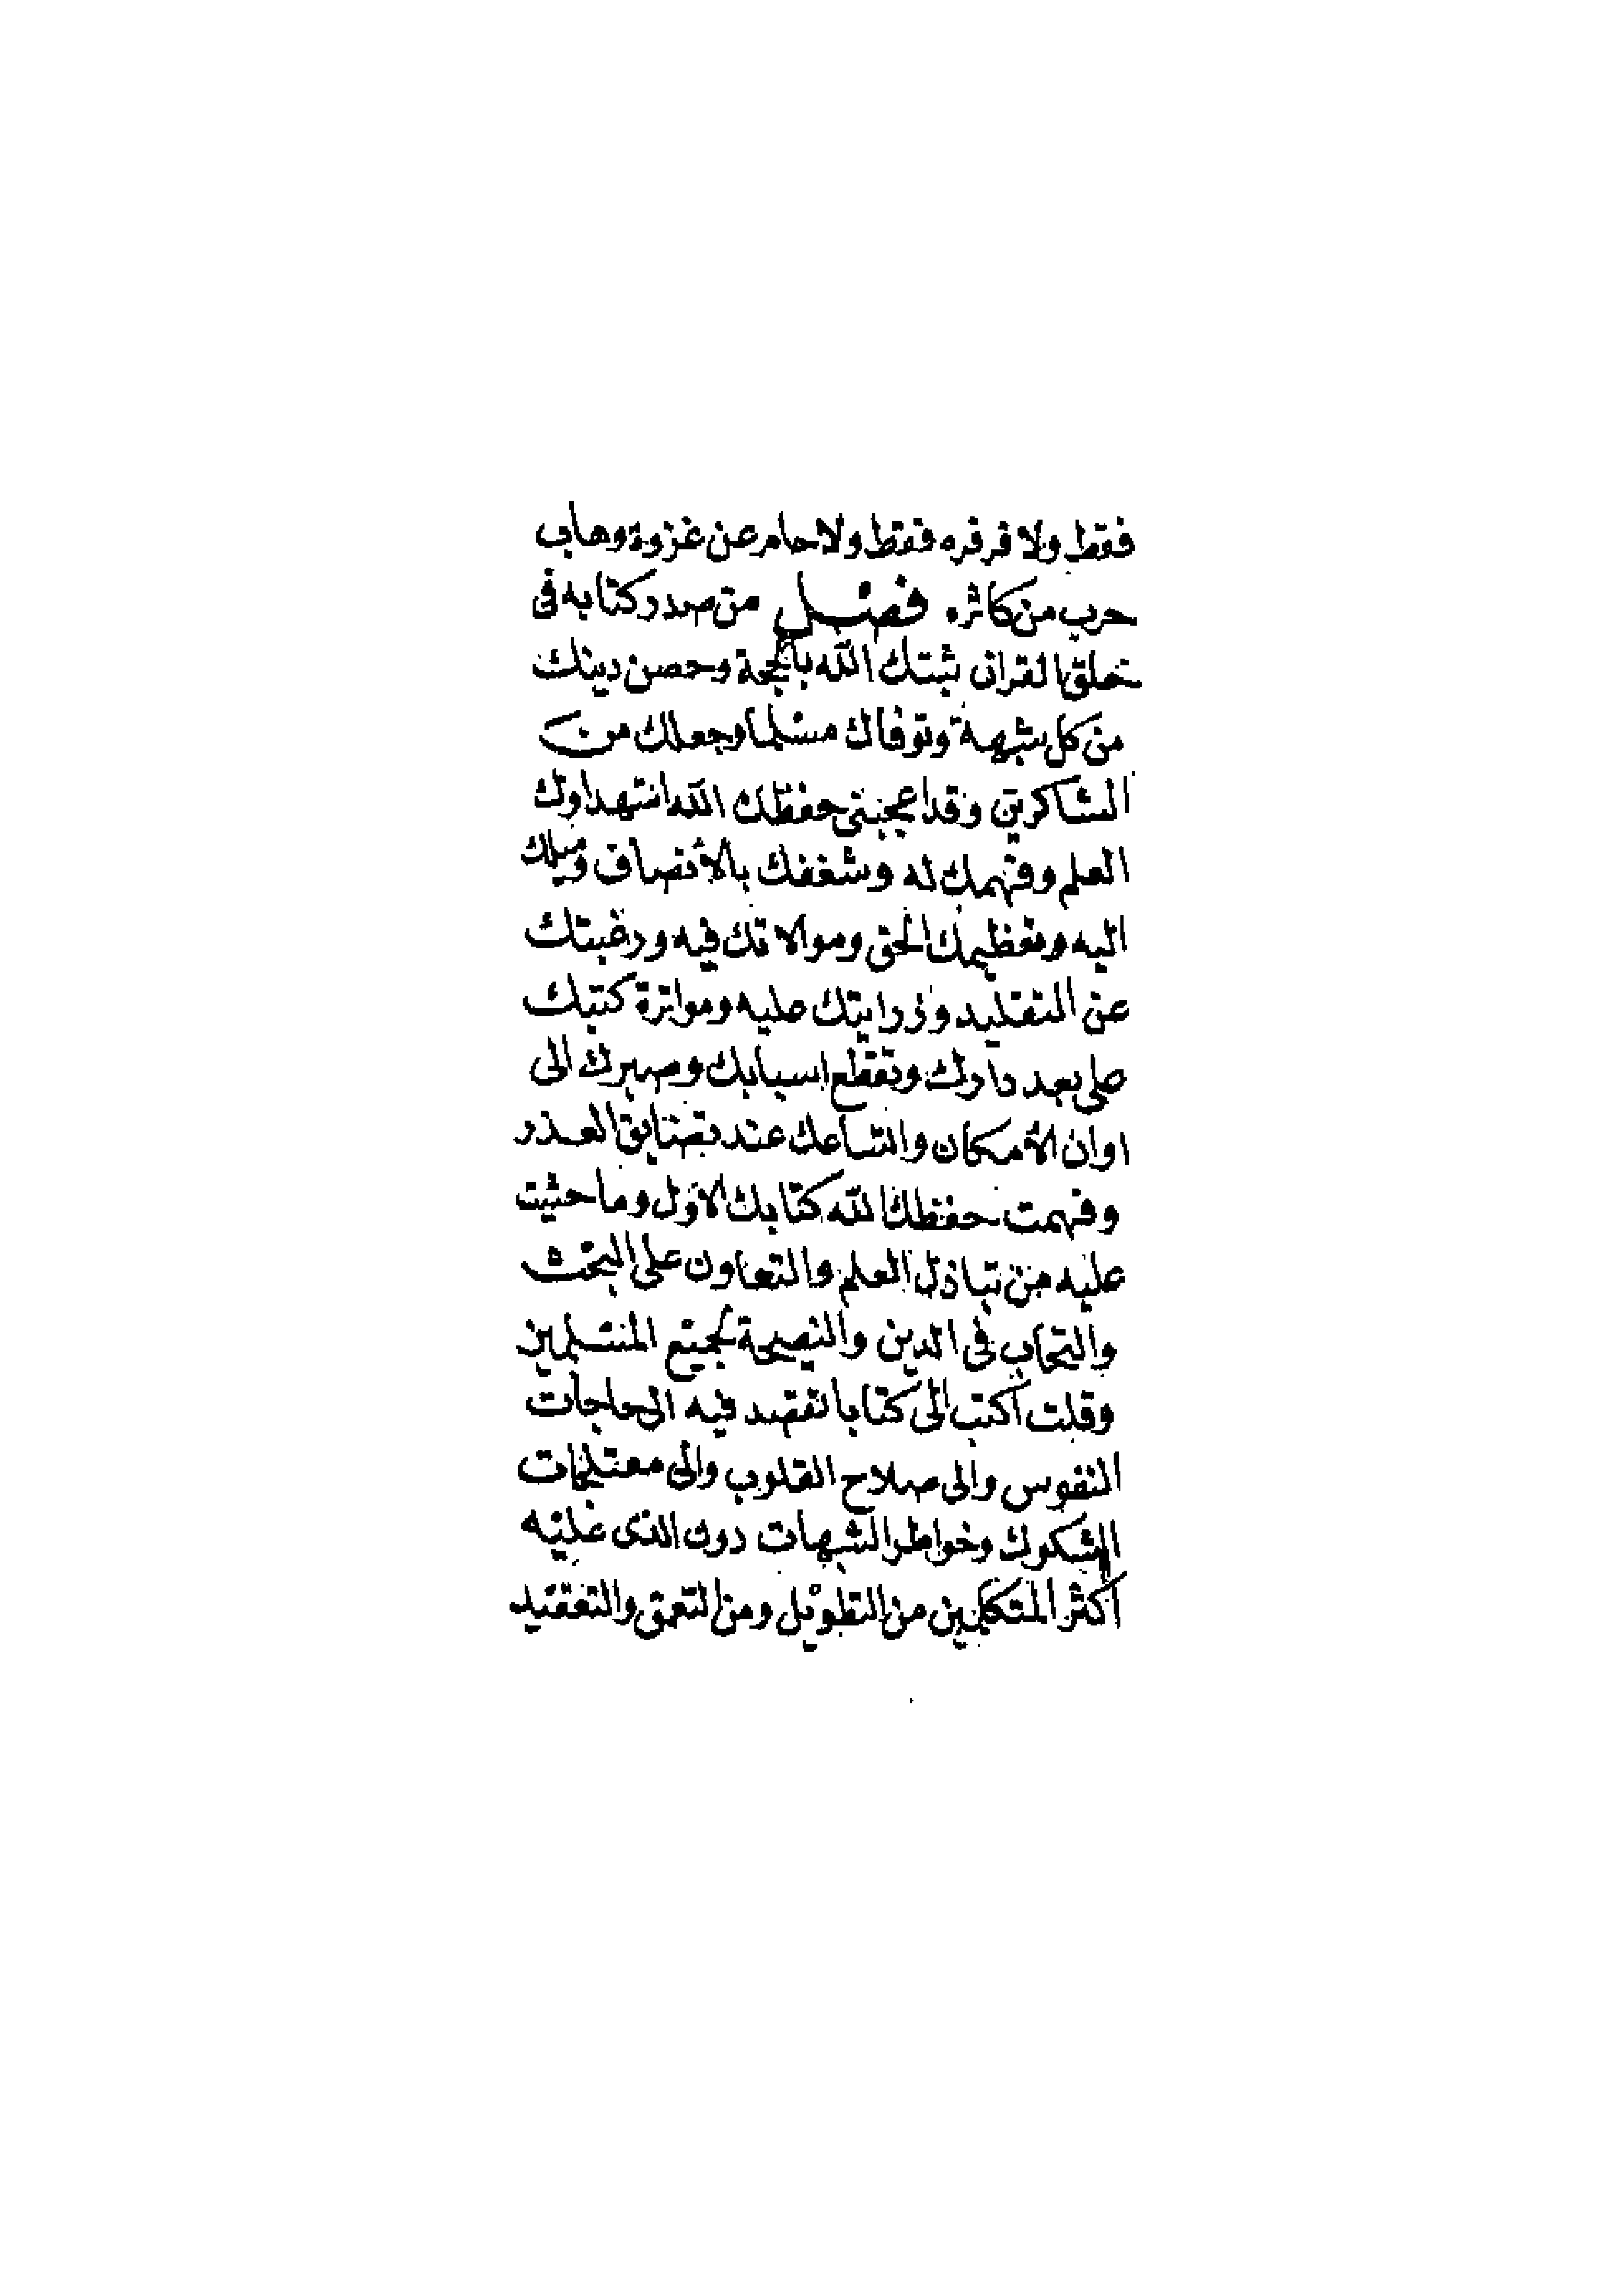 فقط ولا قرقره فقط ولا حام عن غزوة وهاب
حرب من كاثره فصل من صدر كتابه فى
خلق القران ثبتك الله بالحجة وحصن دينك
من كل شبهة وتوفاك مسلما وجعلك من
الشاكرين وقد اعجبنى حفظك الله استهداوك
العلم وفهمك له وشغفك بالأنصاف وميلك
اليه وتعظيمك الحق وموالاتك فيه ورغبتك
عن التقليد وزرايتك عليه ومواترة كتبك
على بعد دارك وتقطع اسبابك وصبرك الى
اوان الأمكان واتساعك عند تضايق العذر
وفهمت حفظك الله كتابك الاول وما حثيت
عليه من تباذل العلم والتعاون على البحث
والتحاب فى الدين والنصيحة لجميع المسلمين
وقلت اكتب الى كتابا تقصد فيه الى حاجات
النفوس والى صلاح القلوب والى معتلجات
الشكوك وخواطر الشبهات دون الذى عليه
اكثر المتكلمين من التطويل ومن التعمق والتعقيد